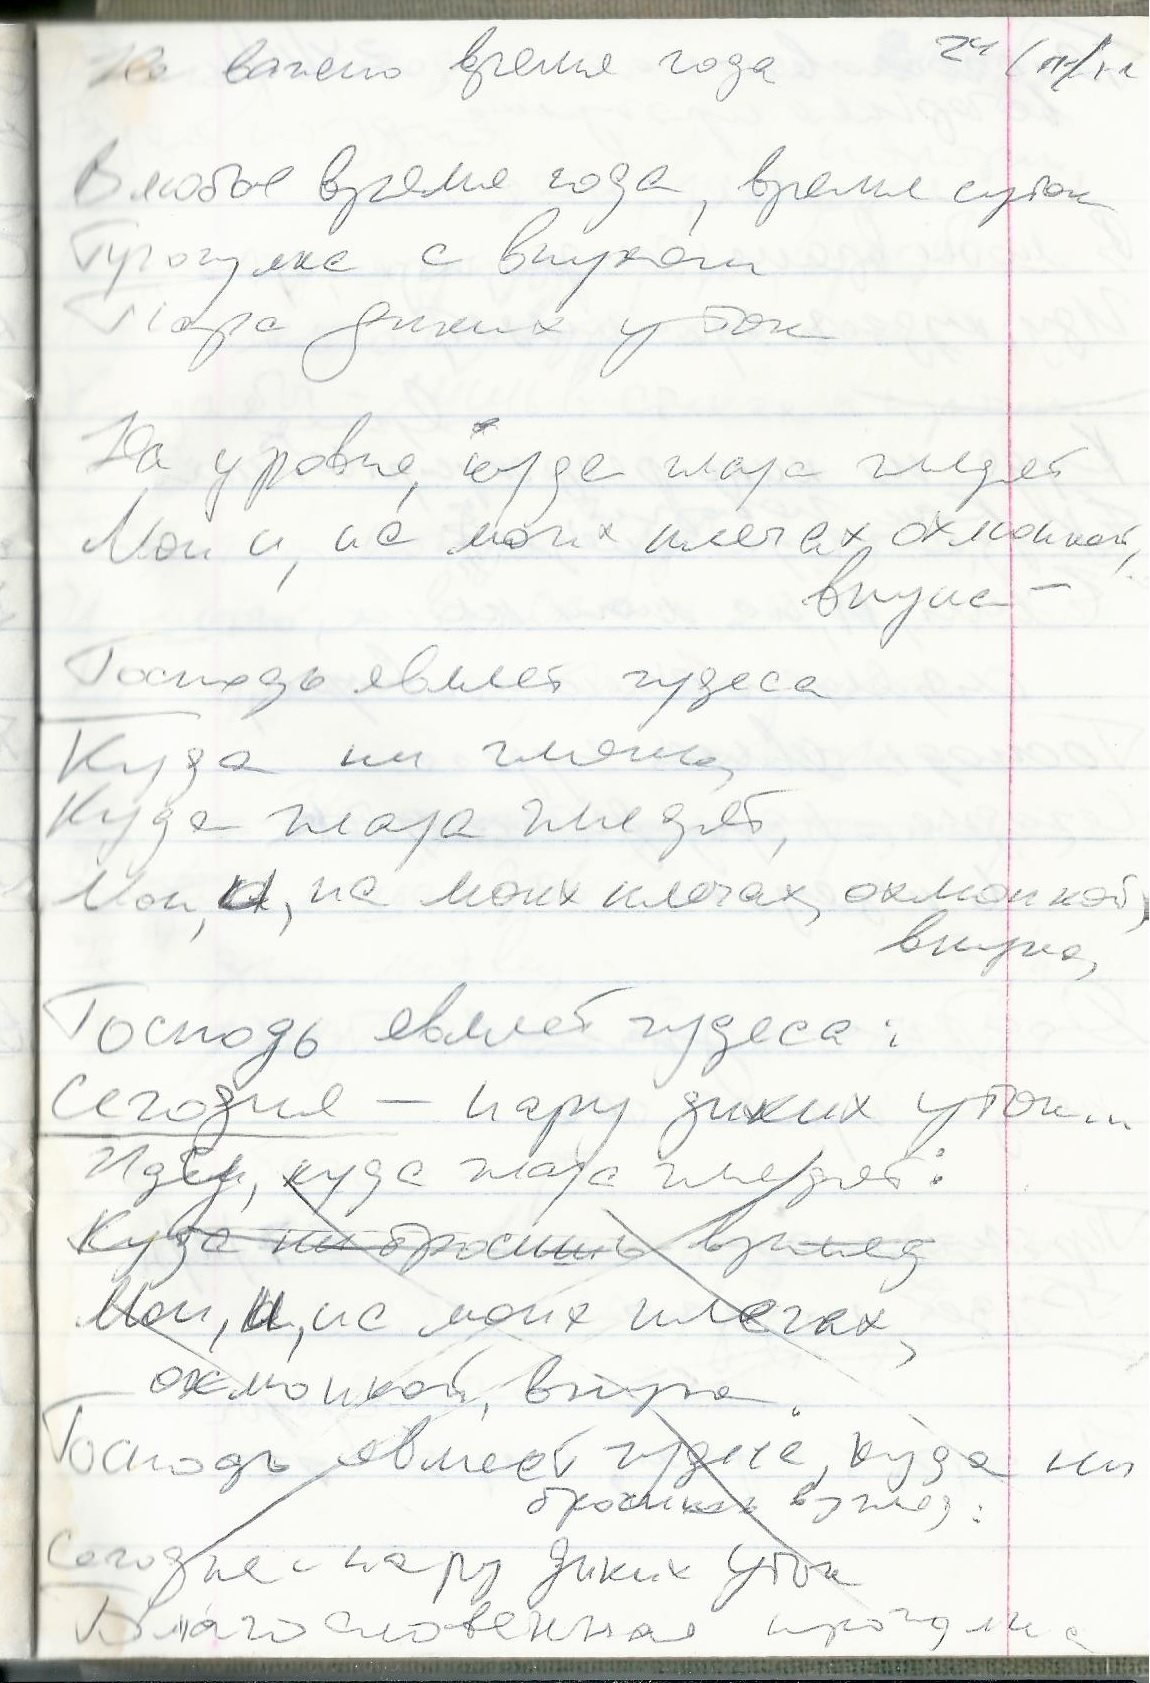 Не важно время года
В любое время года, время суток
Прогулка с внуком
Пара диких уток
На уровне, куда глаза глядят
Мои и, на моих плечах, охломкой,
внука —
Господь являет чудеса
Куда ни гляну,
Куда глаза глядят,
Мои, и, на моих плечах, охломкой,
внука,
Господь являет чудеса:
Сегодня — пару диких уток...
Идём, куда глаза глядят:
Куда ни бросишь взгляд
Мои, и, на моих плечах,
охломкой, внука
Господь являет чудеса, куда ни
бросишь взгляд:
Сегодня – пару диких уток
Благословенная прогулка